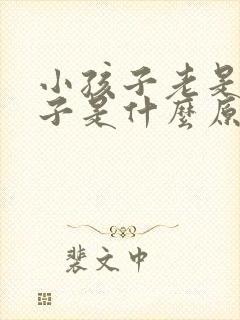 小孩子老是
子是什麼原
裴文中